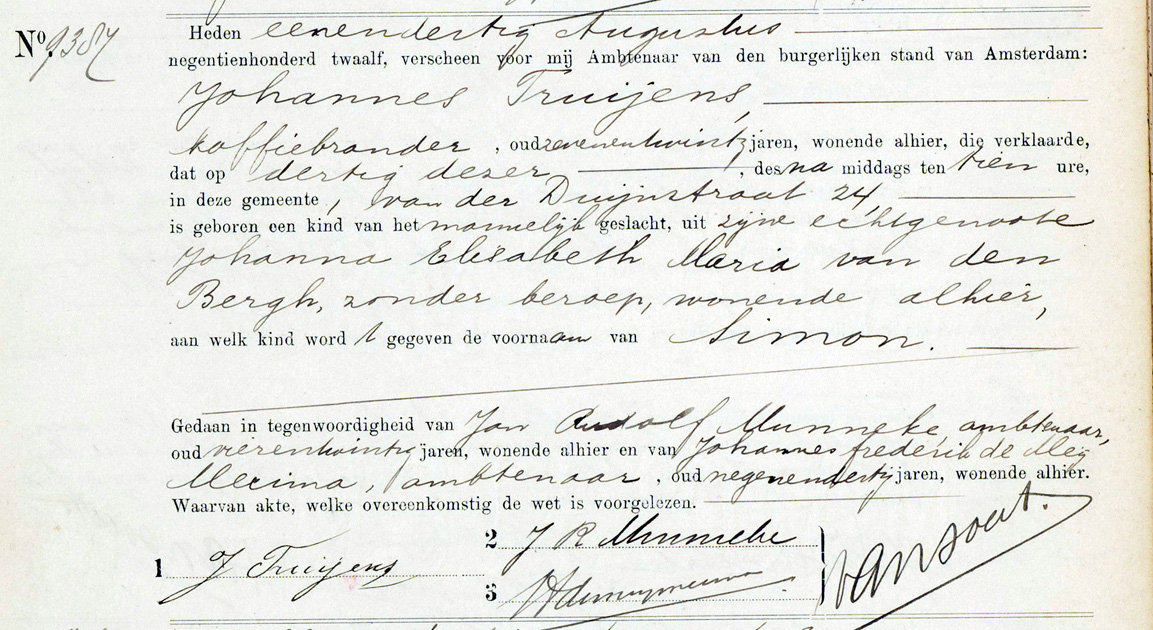 No. 9387
Heden eenendertig Augustus
negentienhonderd twaalf, verscheen voor mij Ambtenaar van den burgerlijken stand van Amsterdam:
Johannes Truijens,
koffiebrander, oud zevenentwintig jaren, wonende alhier, die verklaarde,
dat op dertig dezer, des na middags ten tien ure,
in deze gemeente, van der Duijnstraat 24,
is geboren een kind van het mannelijk geslacht, uit zijne echtgenoote
Johanna Elisabeth Maria van den
Bergh, zonder beroep, wonende alhier,
aan welk kind word t gegeven de voornaam van Simon.
Gedaan in tegenwoordigheid van Jan Rudolf Munneke, ambtenaar,
oud vierentwintig jaren, wonende alhier en van Johannes frederik de Meij
Mecima, ambtenaar, oud negenendertig jaren, wonende alhier.
Waarvan akte, welke overeenkomstig de wet is voorgelezen.
2 J R Munneke
1 J Truijens
3